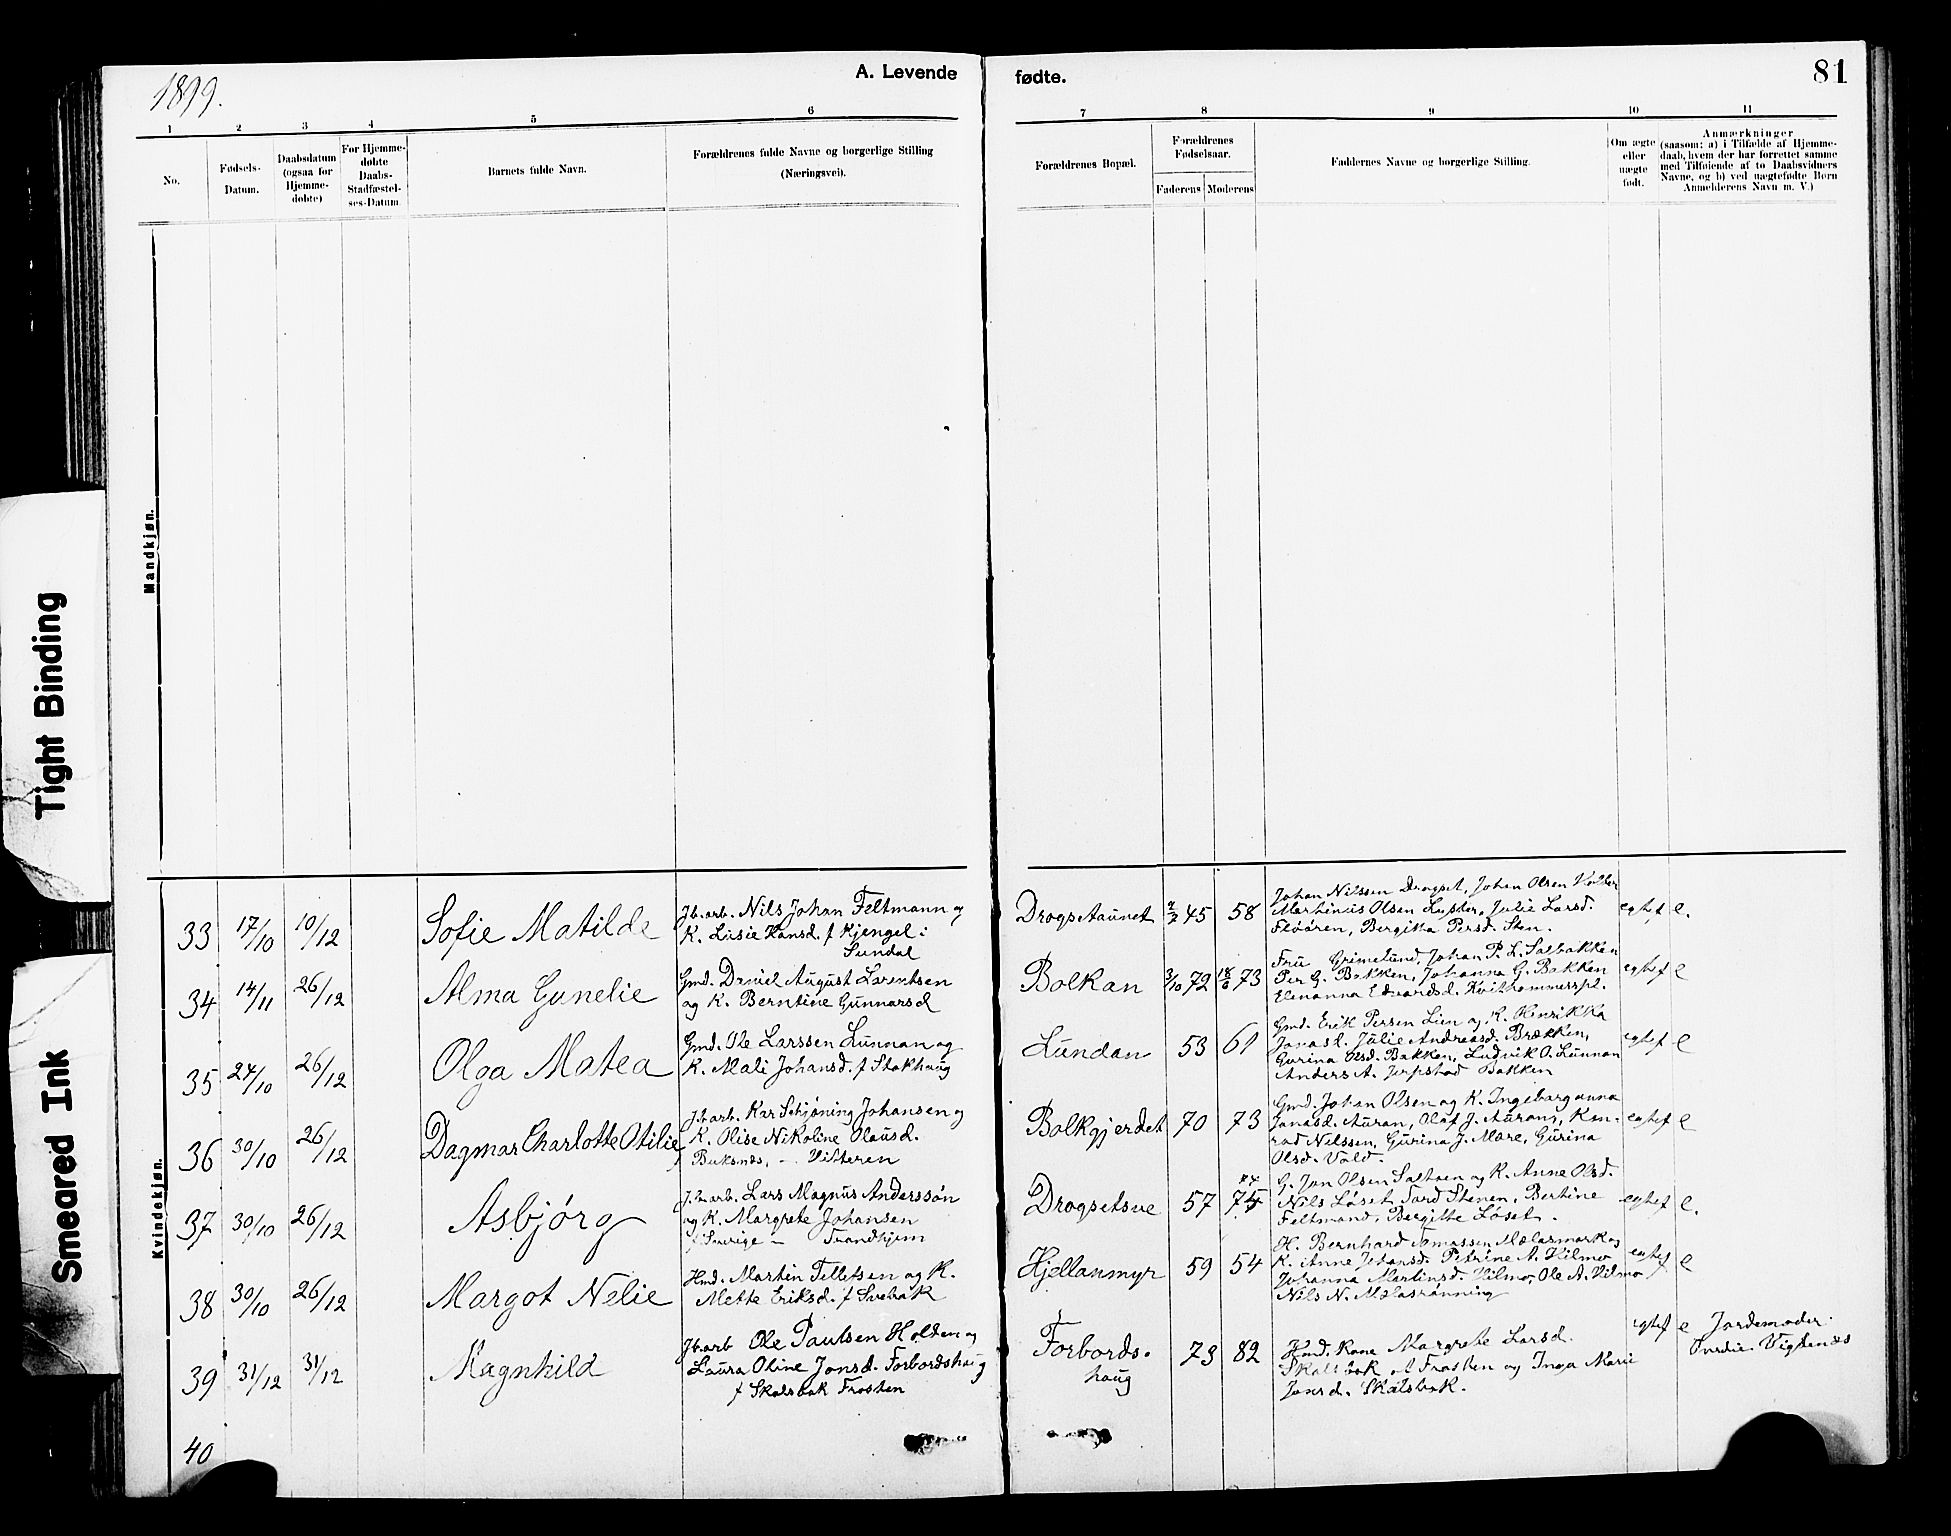 1899.
A. Levende
fødte.
81
1 2 3 4 5 6
7 8 9 10 11
No.
Fødsels-
Datum.
Daabsdatum
(ogsaa for
Hjemme-
døbte)
For Hjemme-
døbte
Daabs-
Stadfæstel-
ses-Datum.
Barnets fulde Navn.
Forældrenes fulde Navne og borgerlige Stilling
(Næringsvei).
Forældrenes Bopæl.
Forældrenes
Fødselsaar.
Faderens Moderens
Faddernes Navne og borgerlige Stilling.
Om ægte
eller
uægte
født.
Anmærkninger
(saasom: a) i Tilfælde af Hjemme-
daab, hvem der har forrettet samme
med Tilføiende af to Daabsvidners
Navne, og b) ved uægtefødte Børn
Anmelderens Navn m. V.)
Mandkjøn.
Tight Binding
Smeared Ink
Kvindekjøn.
33 17/10 10/12 Sofie Matilde
Jb.arb. Nils Johan Feltmann og
K. Lisie Hansd. f Kjengel i
Sundal
Drogsetaunet 2/2 45 58
Johan Nilssen Drogset, Johan Olsen
Martinius Olsen Julie Larsd.
Floøren, Bergitta Persd. Sten.
egtef e.
34 14/11 26/12 Alma Gunelie
Gmd. Daniel August Lorentsen
og K. Berntine Gunnarsd
Bolkan 3/10 72 18/8 73
Fru Grimelund, Johan P. L. Salbakken
Per G. Bakken, Johanna G. Bakken
Elenanna Edvardsd. Kvithammerspl.
egtef e
35 24/10 26/12 Olga Matea
Gmd. Ole Larssen Lunnan og
K. Mali Johansd. f Stokhaug
Lundan 53 61
Gmd. Erik Persen Lien og K. Henrikka
Jonasd. Julie Andreasd. Brækken,
Gurina Olsd. Bakken, Ludvik O. Lunnan
Anders A. Jerpstad Bakken
egtef e
36 30/10 26/12 Dagmar Charlotte Otilie
Jb.arb. Kar Schjøning Johansen og
K. Olise Nikoline Olausd.
f Buksnæs, - Hitteren
Bolkgjerdet 70 73
Gmd. Johan Olsen og K. Ingeborganna
Jonasd. Auran, Olaf J. Aurang, Kon-
rad Nilssen, Gurina J. Mære, Gurina
Olsd. Vold.
egtef e
37 30/10 26/12 Asbjørg
Jb.arb. Lars Magnus Anderssøn
og K. Margrete Johansen
f Sverige - Trondhjem
Drogsetsve 57 74
G. Jon Olsen Saltøen og K. Anne Olsd.
Nils Løset, Tard Stenen, Bertine
Feltmand, Bergitte Løset.
egtef e.
38 30/10 26/12 Margot Nelie
Hmd. Martin Telletsen og K.
Mette Eriksd. f Svebak
Hjellanmyr 59 54
H. Bernhard Tomassen Mælasmark og
K. Anne Johansd. Petrine A. Hilmo
Johanna Martinsd. Hilmo, Ole A. Hilmo
Nils N. Mælasrønning
egtef e
39 31/12 31/12 Ragnhild
Jb.arb Ole Paulsen Holten og
Laura Oline Jonsd. Forbordshaug
f Skalsbak Frosten
Forbords-
haug
73 82
Hmd. Kone Margrete Larsd.
Skalsbak af Frosten og Inga Marie
Jonsd. Skalsbak.
egtef e
Jordemoder.
Vigtenæs
40